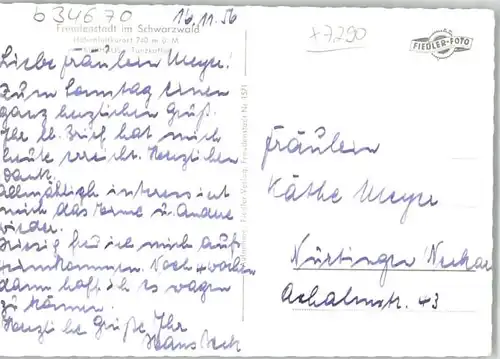 b34670
16.11.56
x7290
Freudenstadt im Schwarzwald
Höhenluftkurort 740 m ü. M.
Tanzkaffee
FIEDLER-FOTO
Liebe Fräulein Meyer!
Zum Sonntag einen
ganz herzlichen Gruß.
Ihr lb. Brief hat mich
heute erreicht. Herzlichen
Dank.
Allmählich interessiert
mich das Eine u. Andere
wieder.
Riesig freu ich mich aufs
Heimkommen. Noch 4 Wochen
dann hoff ich es wagen
zu können.
Herzliche Grüße Ihr
Hans
Fiedler-Verlag, Freudenstadt Nr. 1571
Fräulein
Käthe Meyer
Nürtingen/Neckar
Achalmstr. 43